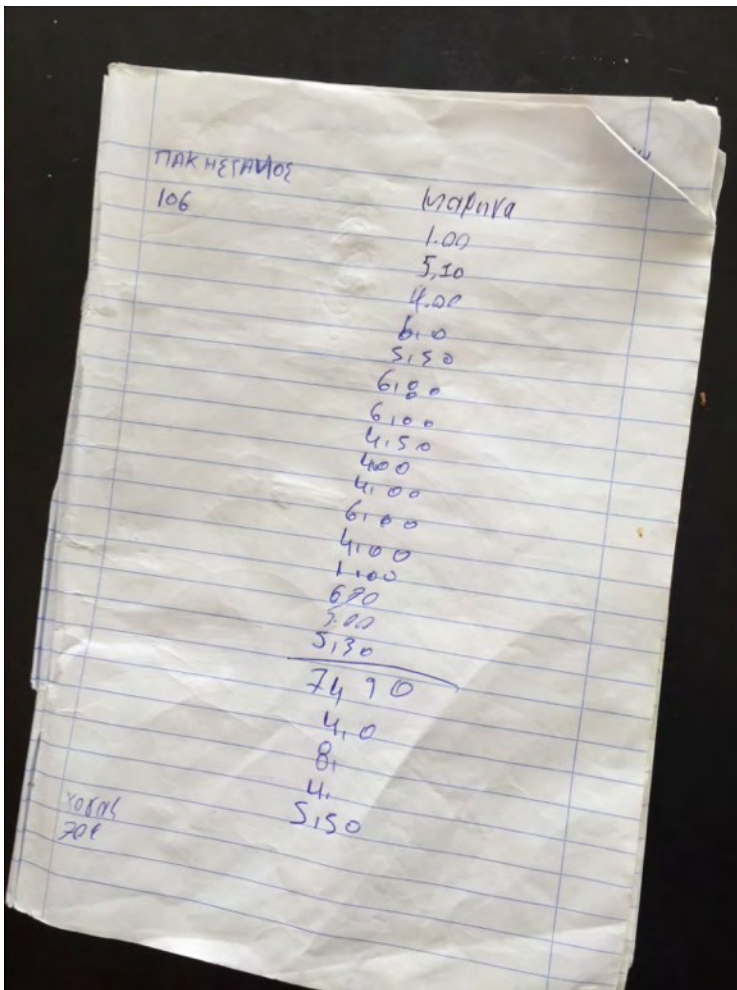 ΠΑΚΗΣΤΑΝΟΣ
106
μαρηνα
1.00
5,10
4.00
6,0
5,50
6,00
6,00
4,50
400
4,00
6,00
4,00
1,00
690
5,30
74 90
4,0
8,
4,
5,50
70€